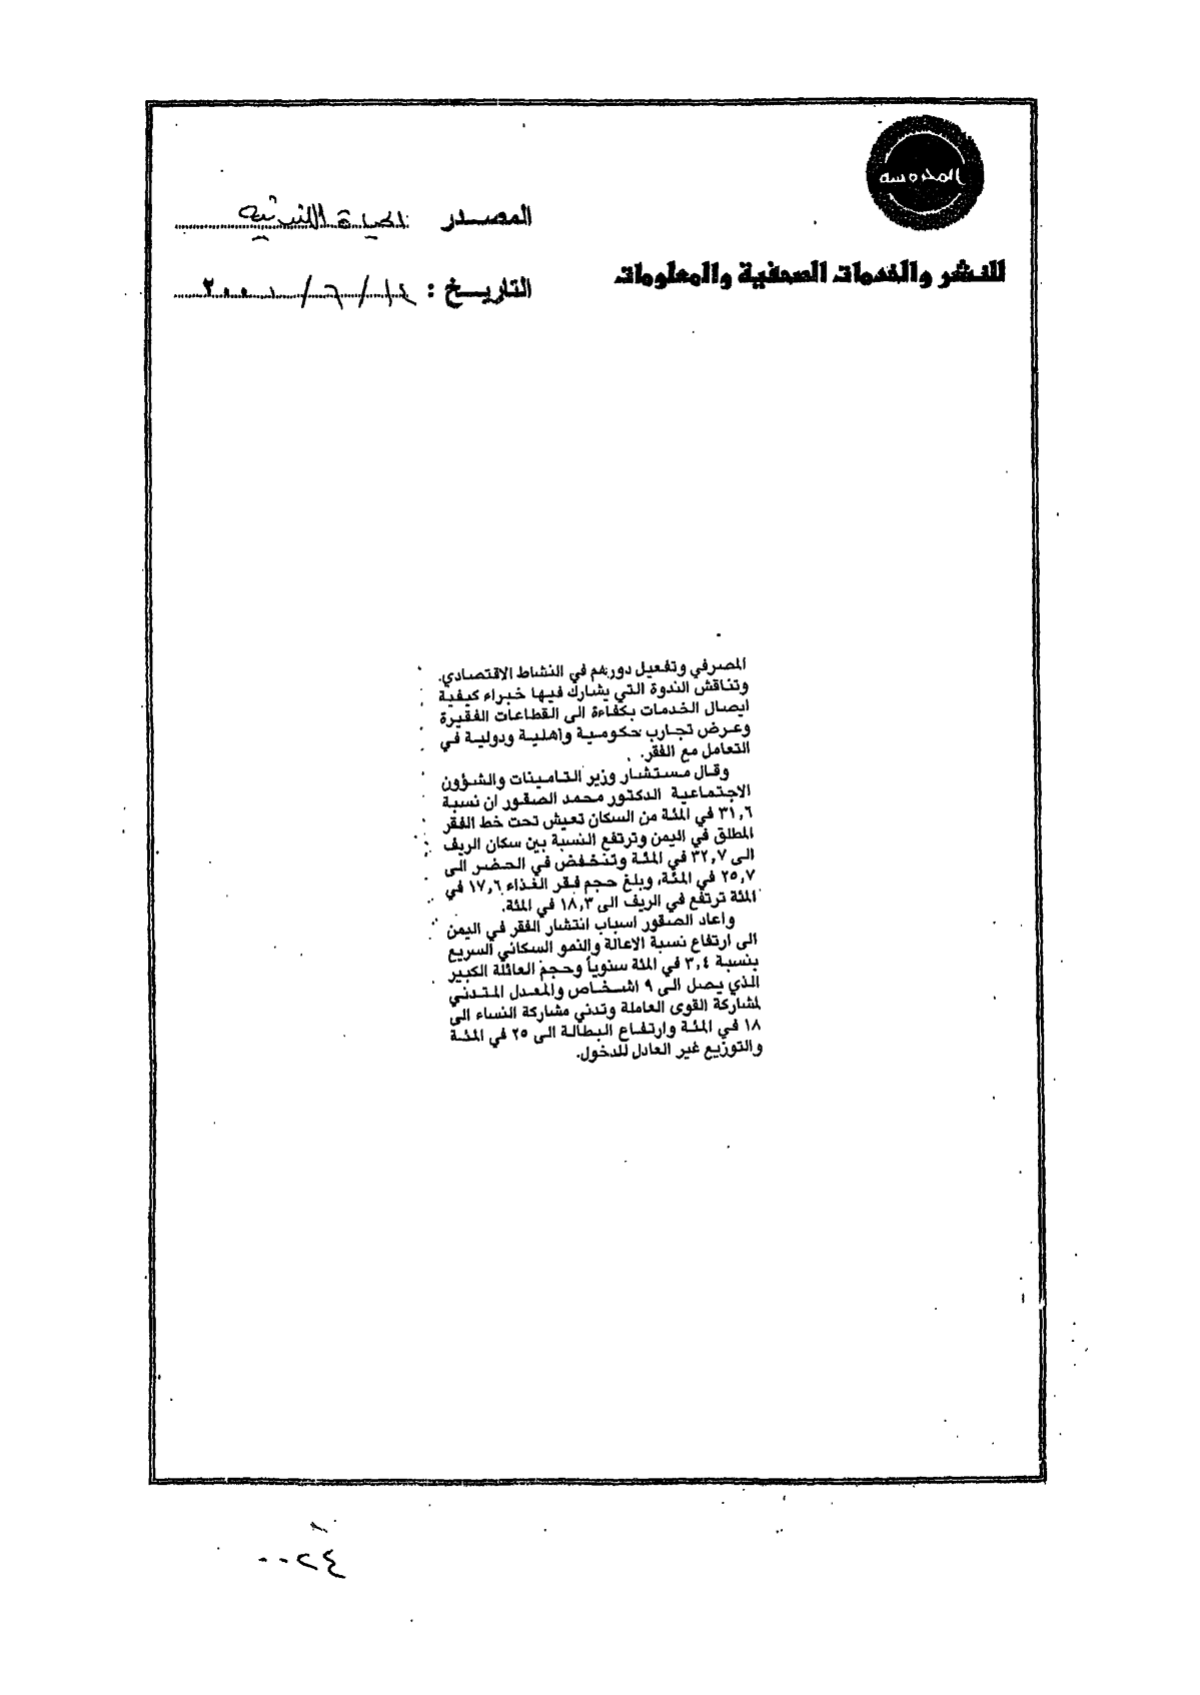 المحروسة
للنشر والخدمات الصحفية والمعلومات
المصدر الحياة اللندنية
التاريخ : ١٤/٦/٢٠٠١
المصرفي وتفعيل دورهم في النشاط الاقتصادي.
وتناقش الندوة التي يشارك فيها خبراء كيفية
ايصال الخدمات بكفاءة الى القطاعات الفقيرة
وعرض تجارب حكومية واهلية ودولية في
التعامل مع الفقر.
وقال مستشار وزير التامينات والشؤون
الاجتماعية الدكتور محمد الصقور ان نسبة
٣١,٦ في المئة من السكان تعيش تحت خط الفقر
المطلق في اليمن وترتفع النسبة بين سكان الريف
الى ٣٢,٧ في المئة وتنخفض في الحضر الى
٢٥,٧ في المئة، وبلغ حجم فقر الغذاء ١٧,٦ في
المئة ترتفع في الريف الى ١٨,٣ في المئة.
واعاد الصقور اسباب انتشار الفقر في اليمن
الى ارتفاع نسبة الاعالة والنمو السكاني السريع
بنسبة ٣,٤ في المئة سنوياً وحجم العائلة الكبير
الذي يصل الى ٩ اشخاص والمعدل المتدني
لمشاركة القوى العاملة وتدني مشاركة النساء الى
١٨ في المئة وارتفاع البطالة الى ٢٥ في المئة
والتوزيع غير العادل للدخول.